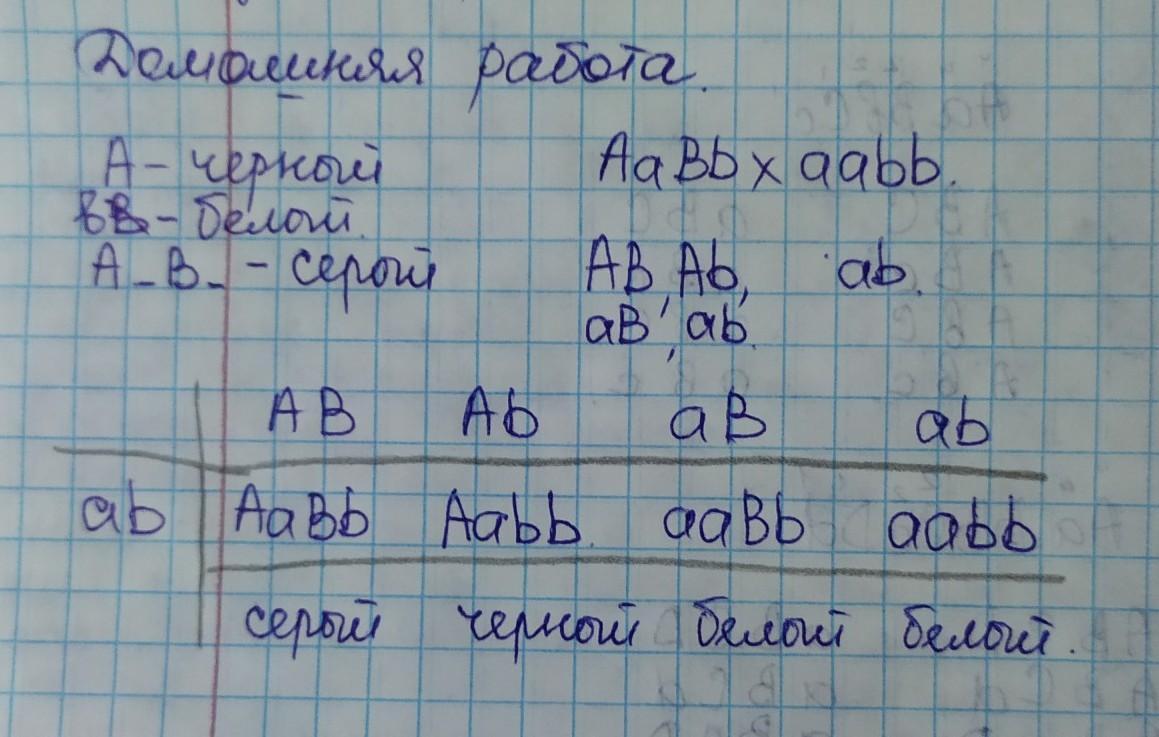 Домашняя работа.
А - черный AaBb x aabb.
- белый.
A_B_ - серый AB, Ab, ab.
aB, ab.
AB Ab aB ab
ab AaBb Aabb. aaBb aabb
серый черный белый белый.